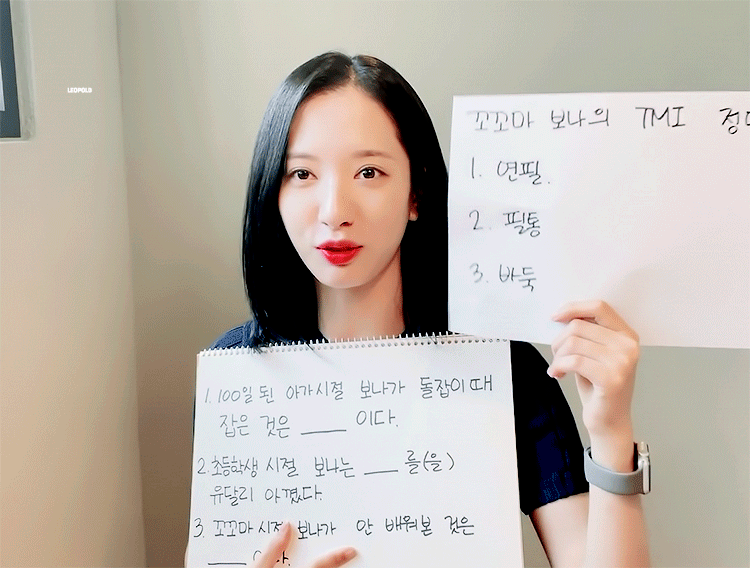 꼬꼬마 보나의 TMI 정
1. 연필.
2. 필통
3. 바둑
1. 100일 된 아가시절 보나가 돌잡이 때
잡은 것은 ____ 이다.
2. 초등학생 시절 보나는 ___ 를(을)
유달리 아꼈다.
3. 꼬꼬마 시절 보나가 안 배워본 것은
____ 이다.